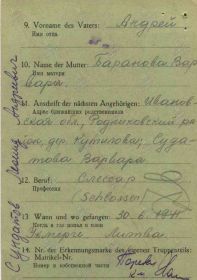 9. Vorname des Vaters: Андрей
Имя отца
10. Name der Mutter: Баранова Вар
Имя матери
вара
11. Anschrift der nächsten Angehörigen: Иванов-
Адрес ближайших родственников
ская обл., Родниковский р-
он, дер. Кутилова, Суда-
това Варвара
12. Beruf: Слесарь
Профессия (Schlosser)
13. Wann und wo gefangen: 30.6.1941
Когда и где взяты в плен
Литва
14. Nr. der Erkennungsmarke des eigenen Truppenteils:
Matrikel-Nr.
Номер в собственной части
Судатов Андреевич